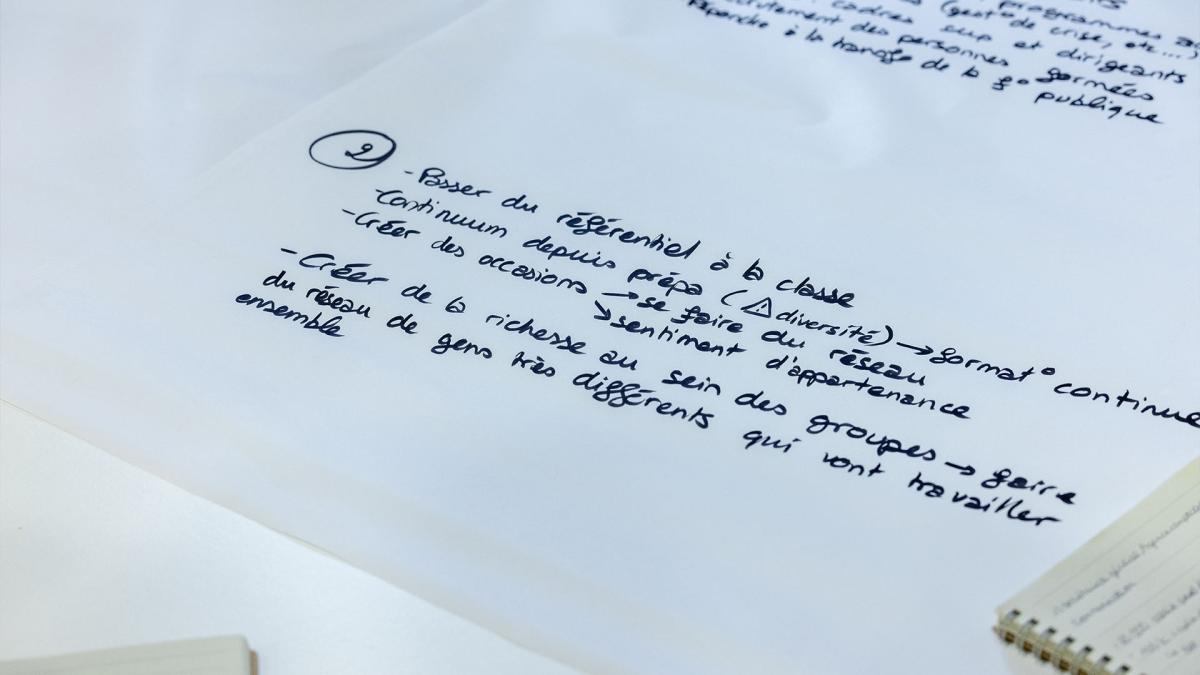 programmes
(gest° de crise, etc...)
cadres sup et dirigeants
des personnes formées
à la transfo de la f° publique
2
- Passer du référentiel à la classe
- Continuum depuis prépa (⚠ diversité) → format° continue
- Créer des occasions → se faire du réseau
↘ sentiment d'appartenance
- Créer de la richesse au sein des groupes → faire
du réseau de gens très différents qui vont travailler
ensemble